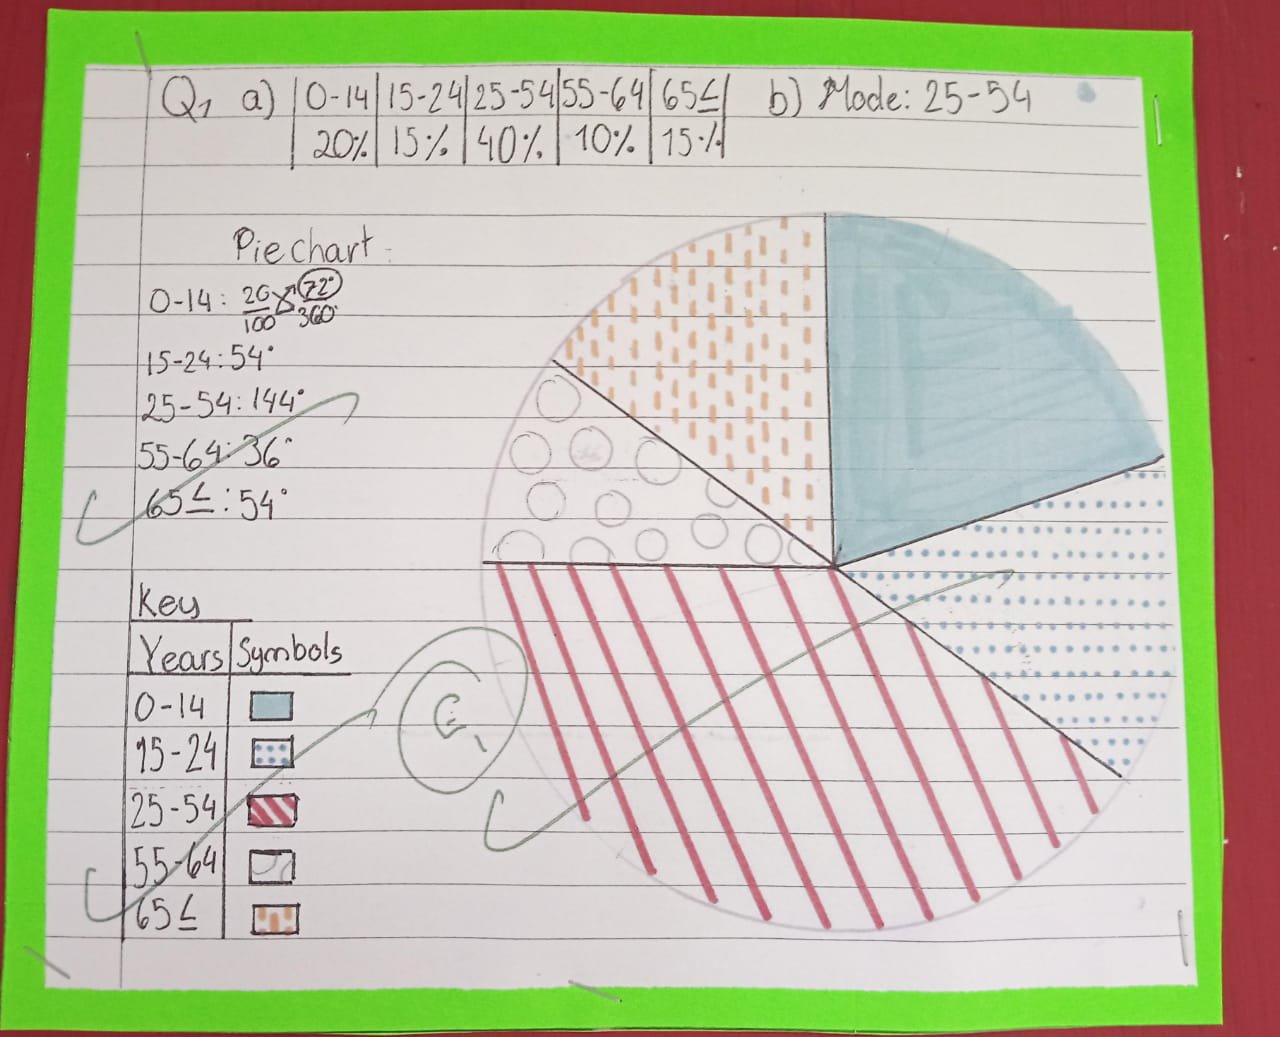 Q1 a) 0-14 15-24 25-54 55-64 65≤ b) Mode: 25-54
20% 15% 40% 10% 15%
Pie chart
0-14: 20/100 72°/360°
15-24: 54°
25-54: 144°
55-64: 36°
65≤: 54°
Key
Years Symbols
0-14
15-24
25-54
55-64
65≤